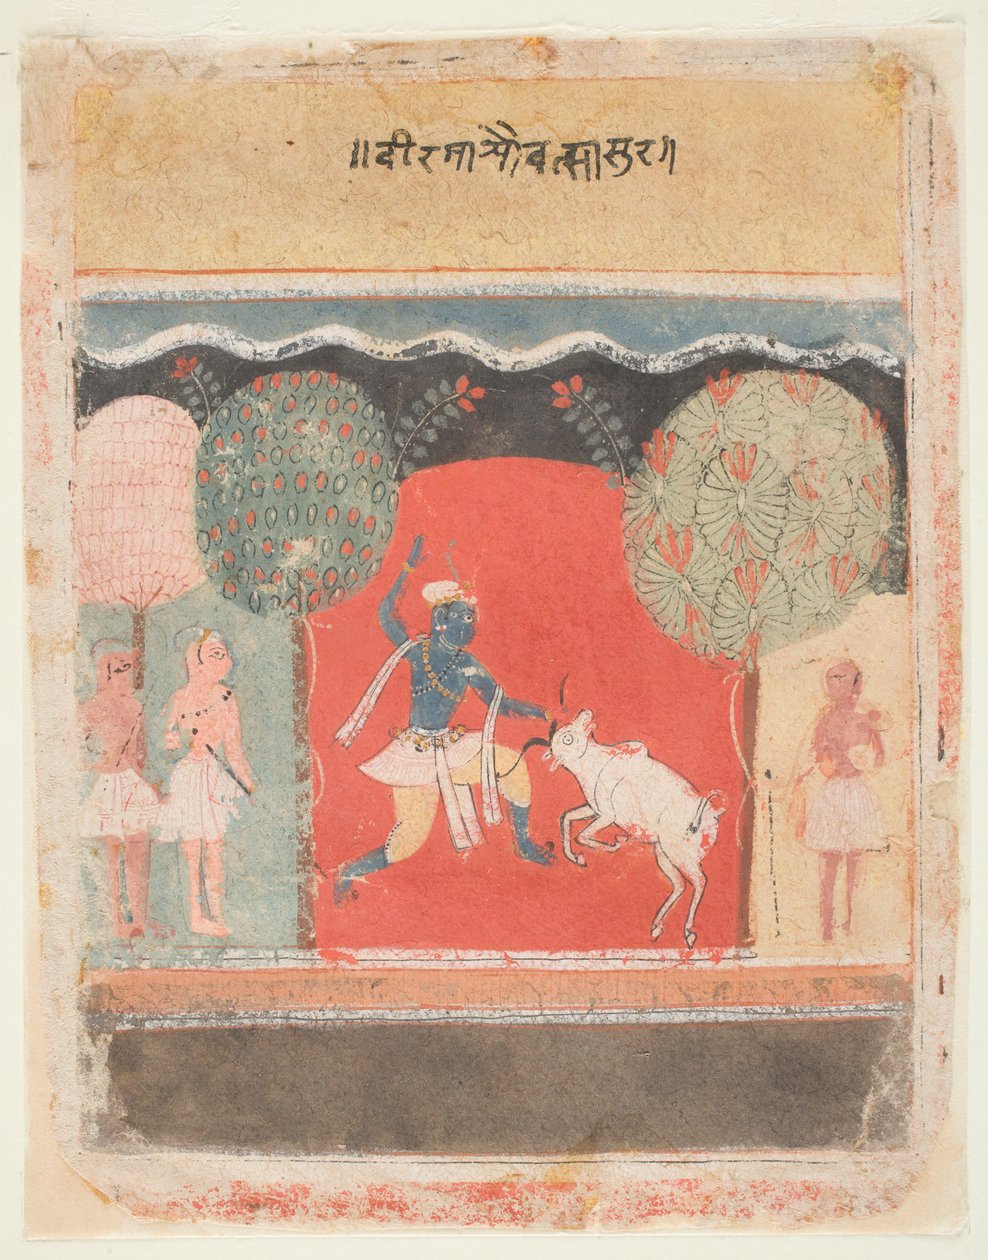 ॥वीरमाऱ्यौवत्सासुर॥